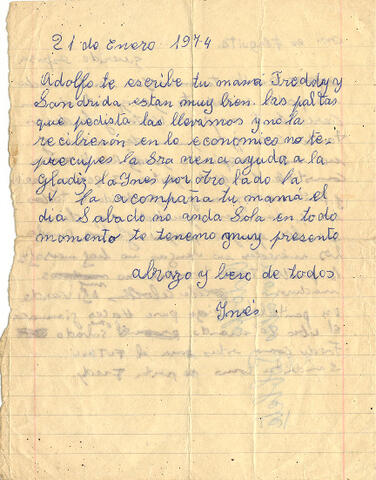 21 de Enero 1974
Adolfo te escribe tu mamá Freddy y
Sandrida estan muy bien. las paltas
que pedista las llevamos y no la
recibierón en lo economico no te
precupes la Sra nena ayuda, a la
Gladis la Inés por otro lado la
y la acompaña tu mamá el
dia Sabado no anda Sola en todo
momento te tenemo muy presente
abrazo y beso de todos
Inés.